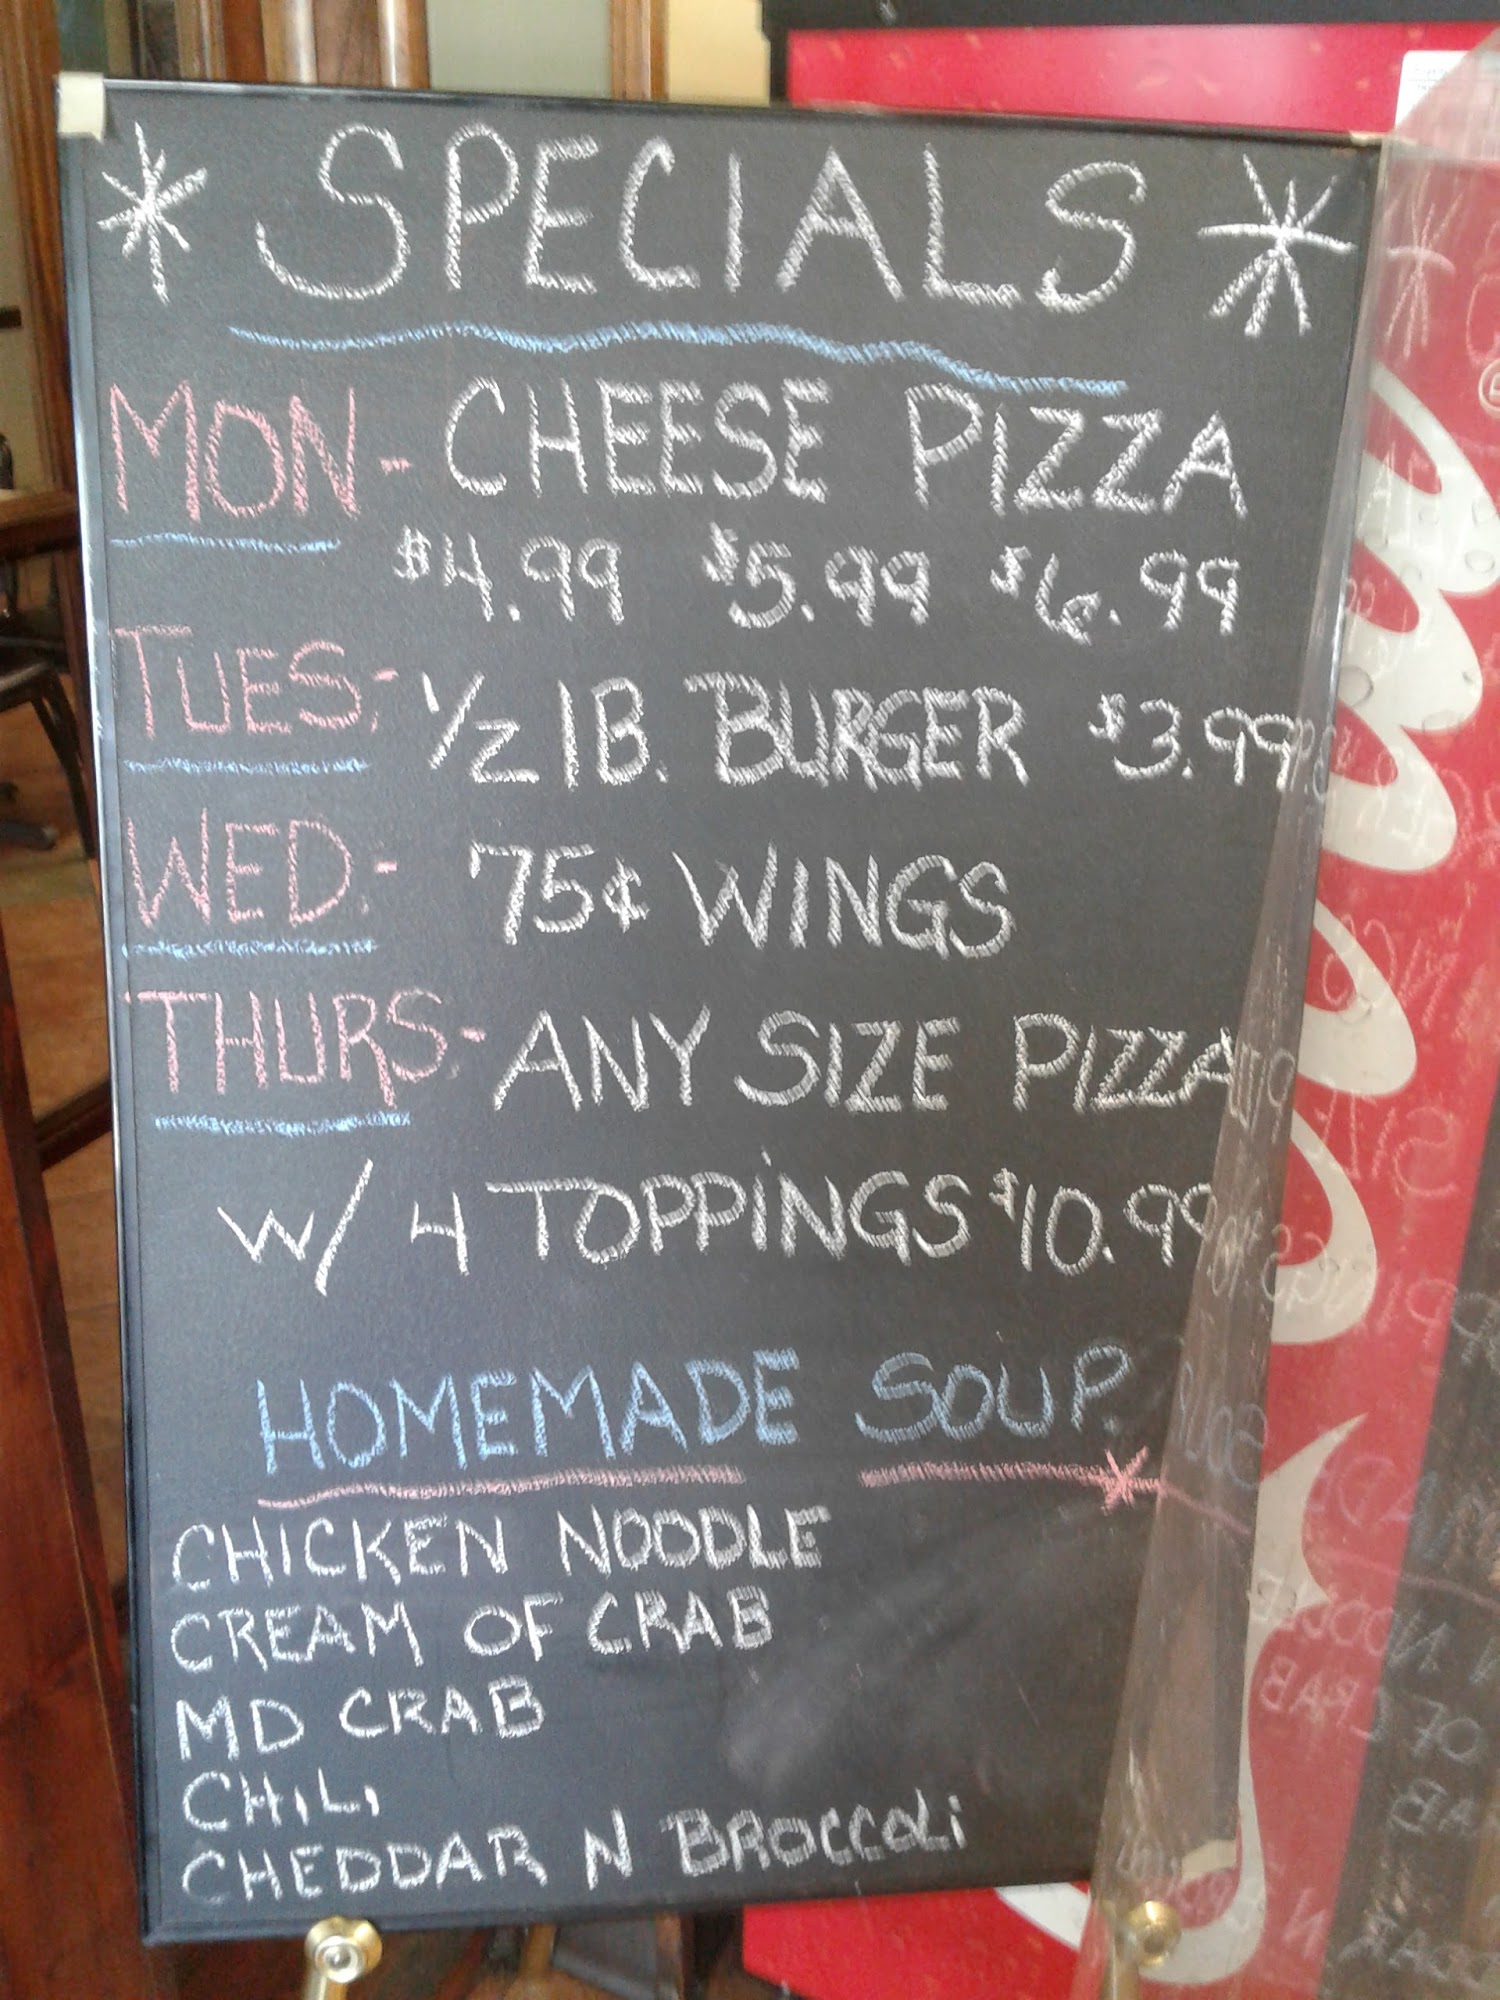 * SPECIALS *
MON- CHEESE PIZZA
$4.99 $5.99 $6.99
TUES:- 1/2 lB. BURGER $3.99
WED:- 75¢ WINGS
THURS:- ANY SIZE PIZZA
W/ 4 TOPPiNGS $10.99
HOMEMADE SOUP.
CHICKEN NOODLE
CREAM OF CRAB
MD CRAB
CHILI
CHEDDAR N BROCCOLi